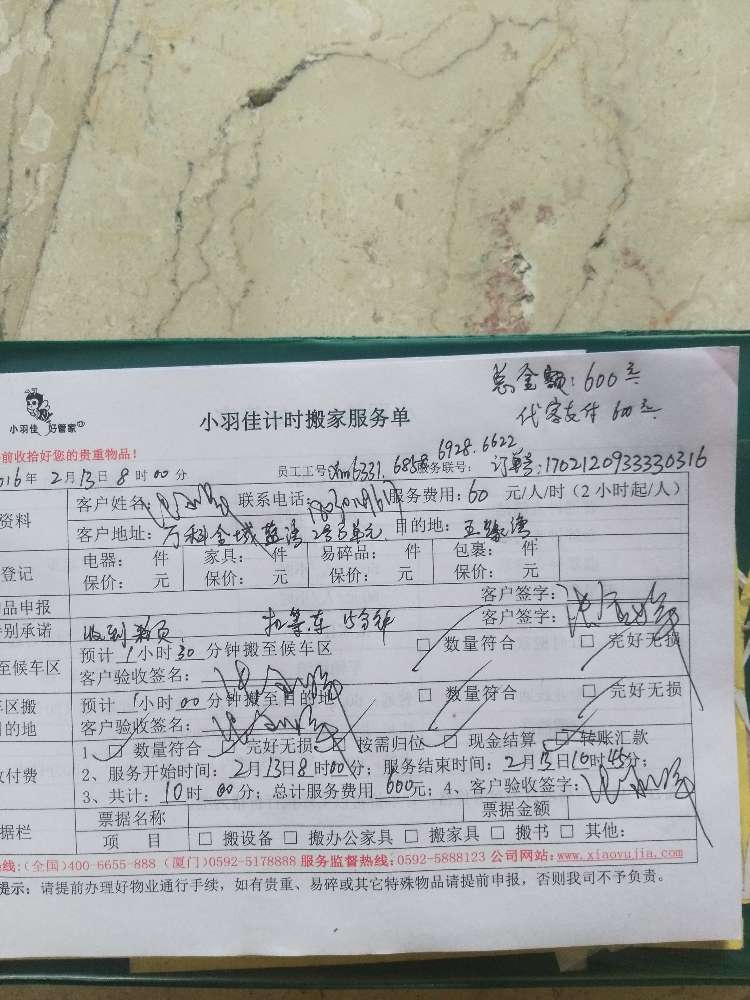 总金额：600元
代客支付 600元
小羽佳 好管家
小羽佳计时搬家服务单
前收拾好您的贵重物品！
016年 2月13日8时00分 员工工号 6331.6858 6928.6622 服务联号： 订单号：1702120933330316
资料 客户姓名 联系电话： 服务费用：60 元/人/时（2小时起/人）
客户地址：万科金域蓝湾 2号3单元 目的地：五缘湾
登记 电器： 件 家具： 件 易碎品： 件 包裹： 件
保价： 元 保价： 元 保价： 元 保价： 元
品申报 客户签字：
别承诺 收到 扣等车15分钟 客户签字：
至候车区 预计 1小时30分钟搬至候车区 □ 数量符合 □ 完好无损
客户验收签名：
区搬 预计 1小时00分钟搬至目的地 □ 数量符合 □ 完好无损
目的地 客户验收签名：
收付费 1、□ 数量符合 □ 完好无损 □ 按需归位 □ 现金结算 □ 转账汇款
2、服务开始时间：2月13日8时00分；服务结束时间：2月13日10时45分；
3、共计：10时00分；总计服务费用 600元；4、客户验收签字：
据栏 票据名称 票据金额
项 目 □ 搬设备 □ 搬办公家具 □ 搬家具 □ 搬书 □ 其他：
热线：(全国)400-6655-888 (厦门)0592-5178888 服务监督热线：0592-5888123 公司网站：www.xiaoyujia.com
提示：请提前办理好物业通行手续，如有贵重、易碎或其它特殊物品请提前申报，否则我司不予负责。